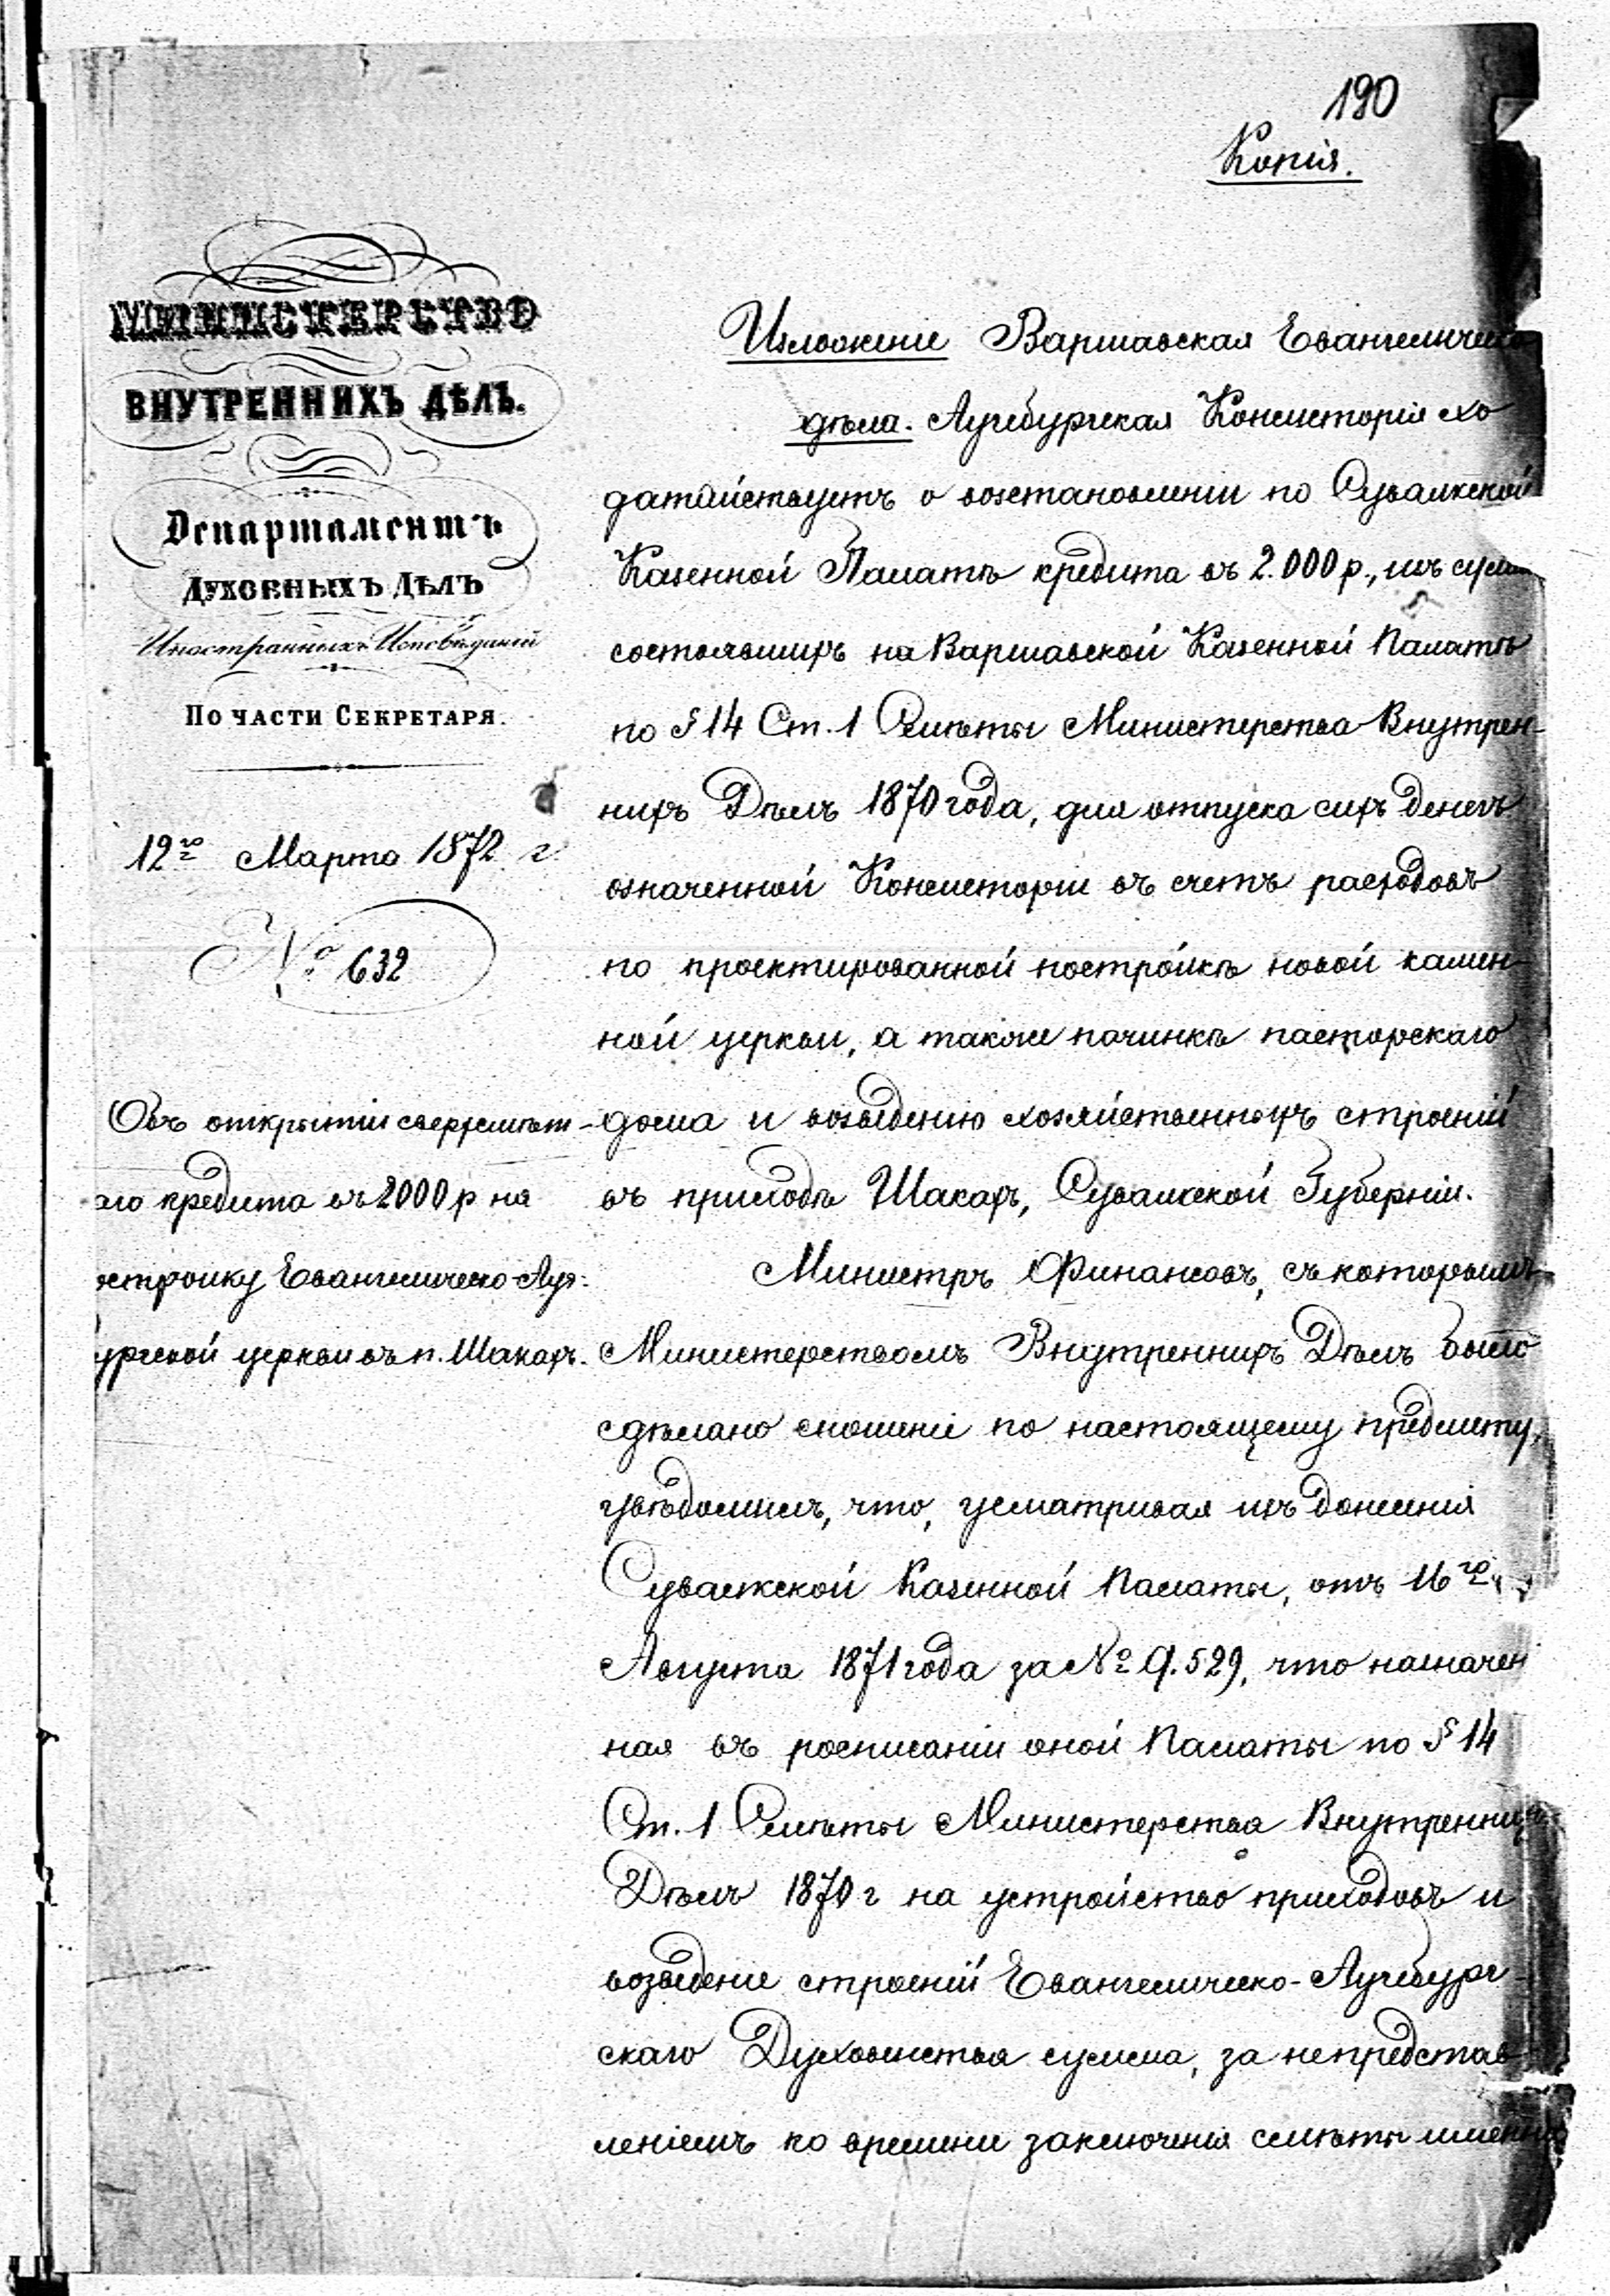 190
Копія.
МИНИСТЕРСТВО
ВНУТРЕННИХЪ ДѢЛЪ.
Департаментъ
Духовныхъ Дѣлъ
Иностранныхъ Исповѣданій
По части Секретаря.
12го Марта 1872 г.
№ 632
Объ открытіи сверхсмѣт-
аго кредита въ 2000 р на
остройку Евангелическо-Аугс-
ургской церкви въ п. Шакахъ.
Изложеніе Варшавская Евангелическо
дѣла. Аугсбургская Консисторія хо
датайствуетъ о возстановленіи по Сувалкской
Казенной Палатѣ кредита въ 2.000 р., изъ суммъ
состоявшихъ на Варшавской Казенной Палатѣ
по § 14 Ст. 1 Смѣты Министерства Внутрен-
нихъ Дѣлъ 1870 года, для отпуска сихъ денегъ
означенной Консисторіи въ счетъ расходовъ
по проектированной постройкѣ новой камен-
ной церкви, а также починкѣ пасторскаго
дома и возведенію хозяйственныхъ строеній
въ приходѣ Шакахъ, Сувалкской Губерніи.
Министръ Финансовъ, съ которымъ
Министерствомъ Внутреннихъ Дѣлъ было
сдѣлано сношеніе по настоящему предмету,
увѣдомилъ, что, усматривая изъ донесенія
Сувалкской Казенной Палаты, отъ 16го
Августа 1871 года за № 9.529, что назначен
ная въ росписаніи оной Палаты по § 14
Ст. 1 Смѣты Министерства Внутреннихъ
Дѣлъ 1870 г на устройство приходовъ и
возведеніе строеній Евангелическо-Аугсбург-
скаго Духовенства сумма, за непредстав
леніемъ ко времени заключенія смѣты именно